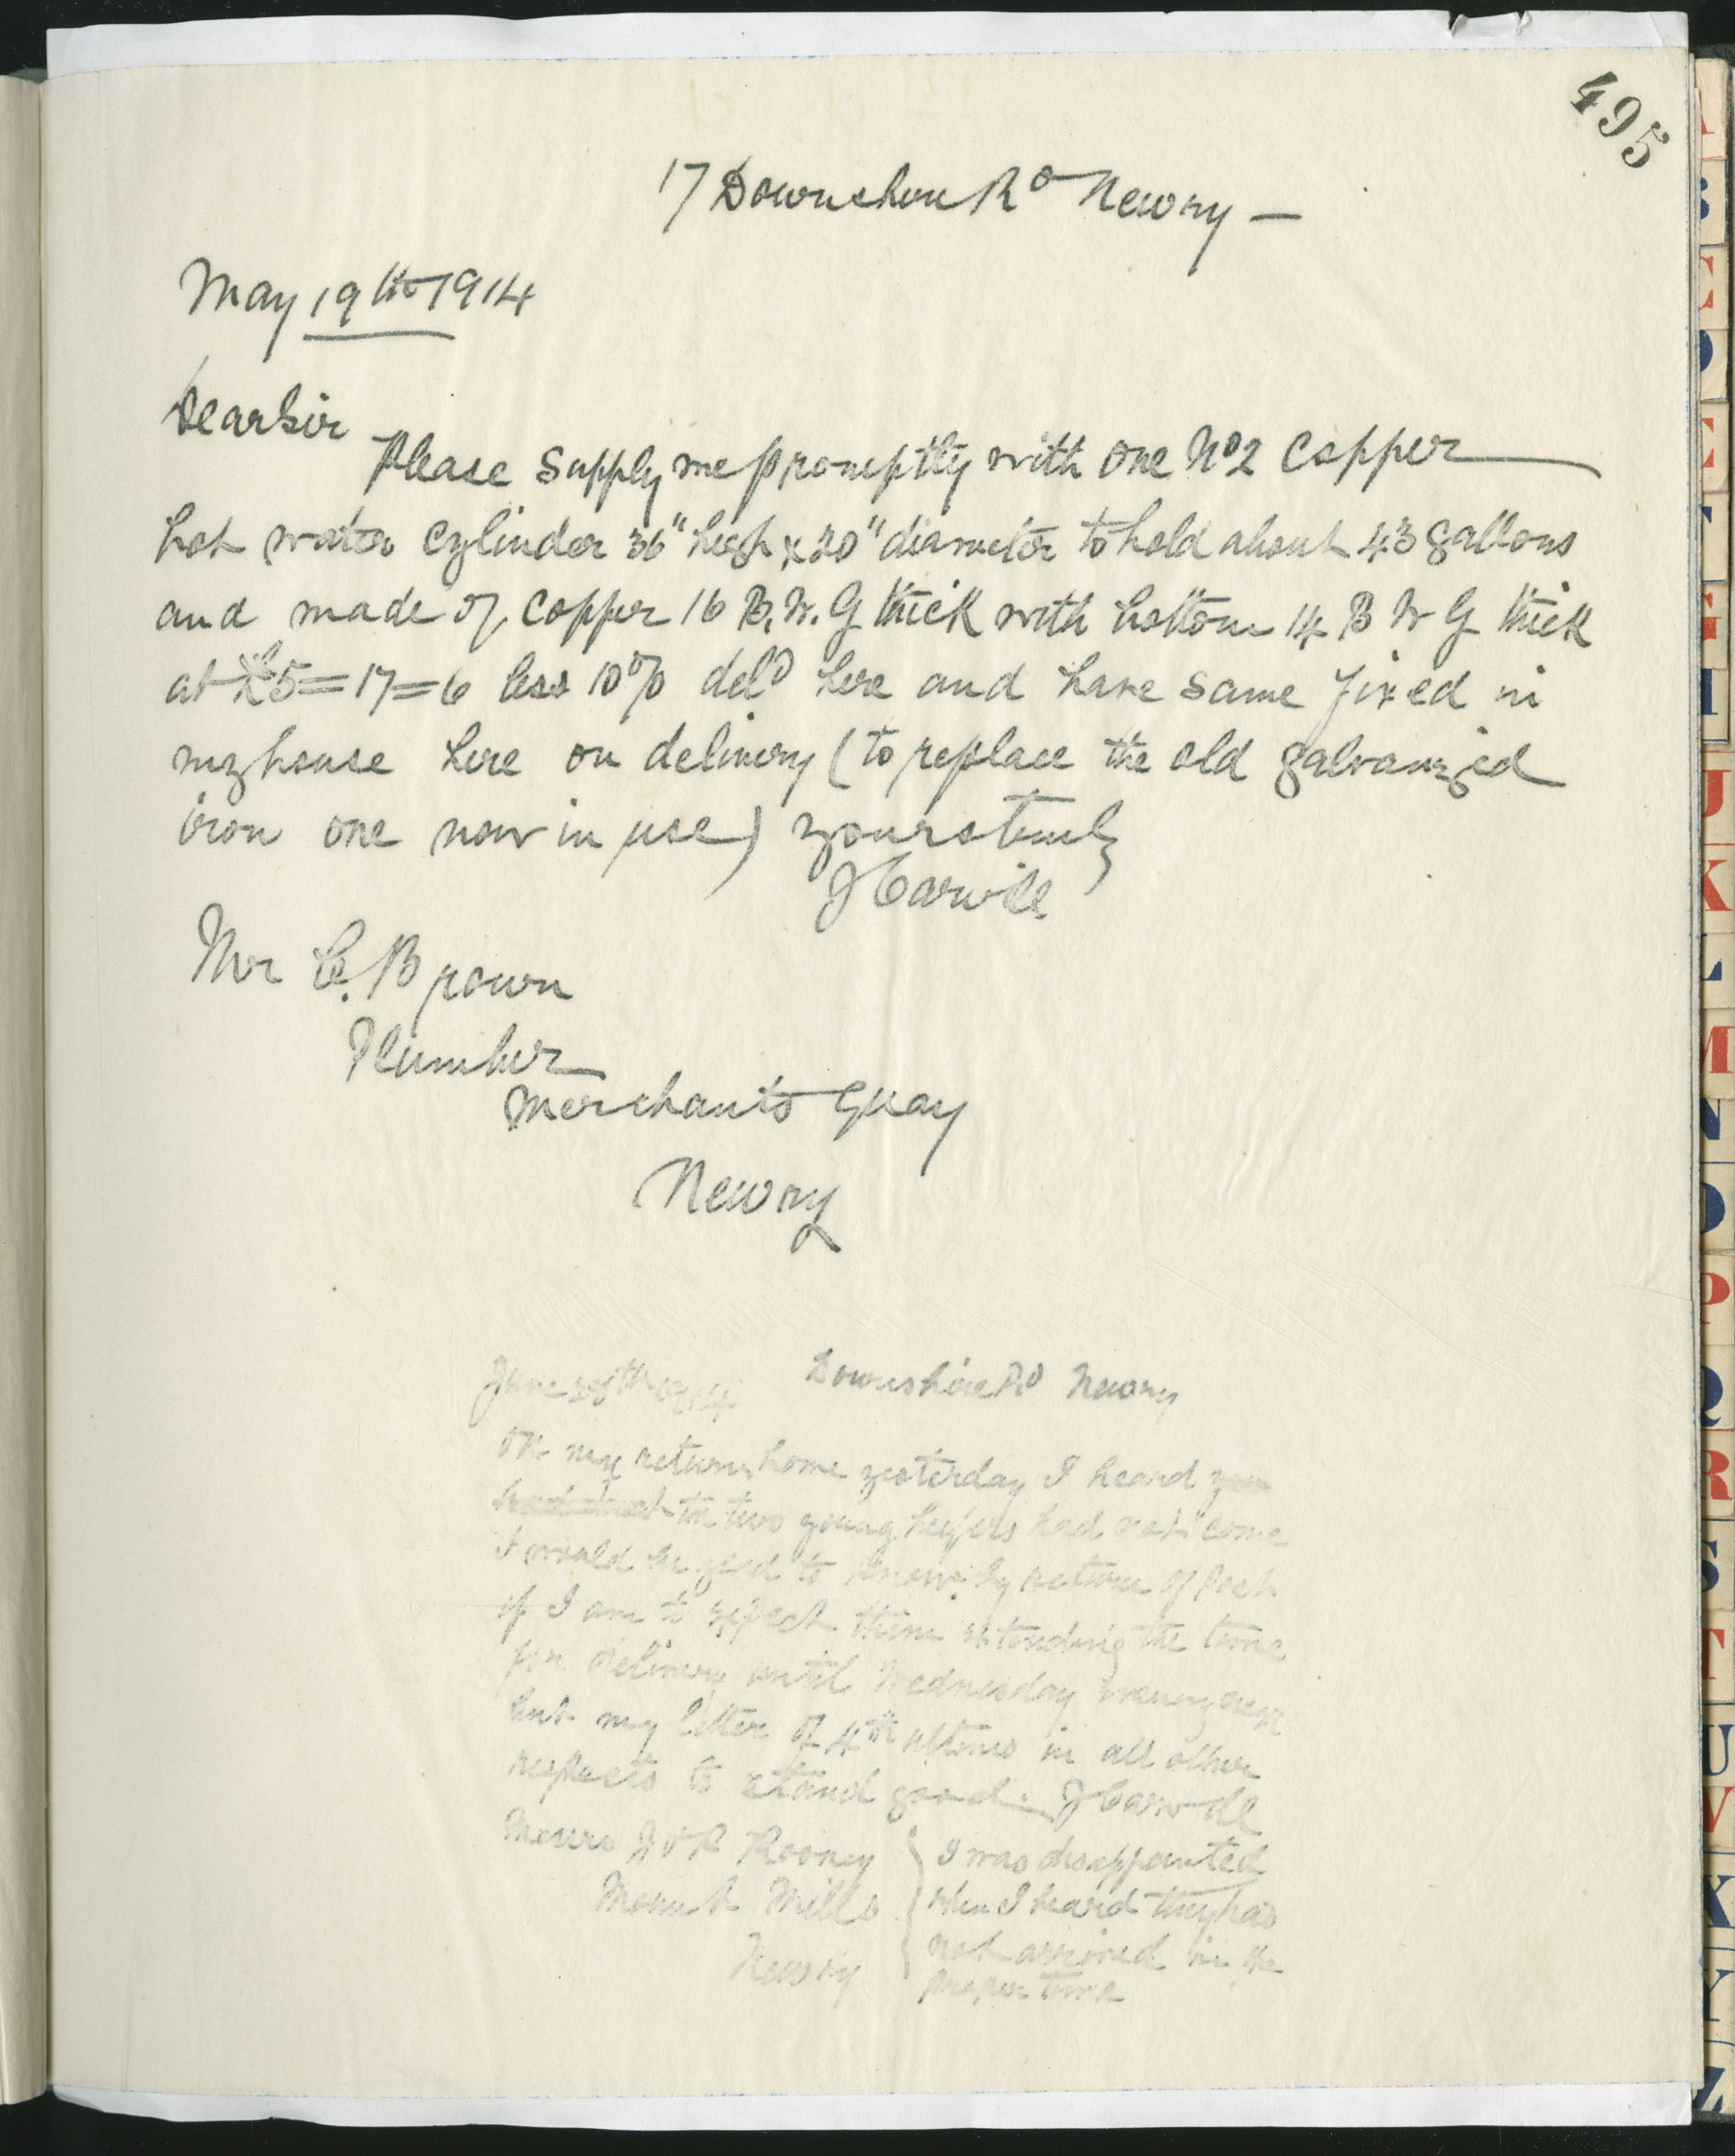 495
17 Downshire Rd Newry —
May 19th 1914
Dear Sir
Please supply me promptly with one No 2 Copper
hot water Cylinder 36" high x 20" diameter to hold about 43 gallons
and made of Copper 16 B.W.G thick with bottom 14 B W G thick
at £5=17=6 less 10% deld here and have same fixed in
my house here on delivery (to replace the old galvanized
iron one now in use) yours truly
J Carvill
Mr C. Brown
Plumber
Merchants Quay
Newry
June 1914 Downshire Rd Newry
on my return home yesterday I heard you
the two young heifers had not come
I would be glad to know by return of Post
if I am to expect them extending the time
for delivery until Wednesday evening next
but my letter of 4th ultimo in all other
respects to stand good. J Carvill
Messrs J & R Rooney
Mills
Newry
I was disappointed
when I heard they had
not arrived in the
proper time